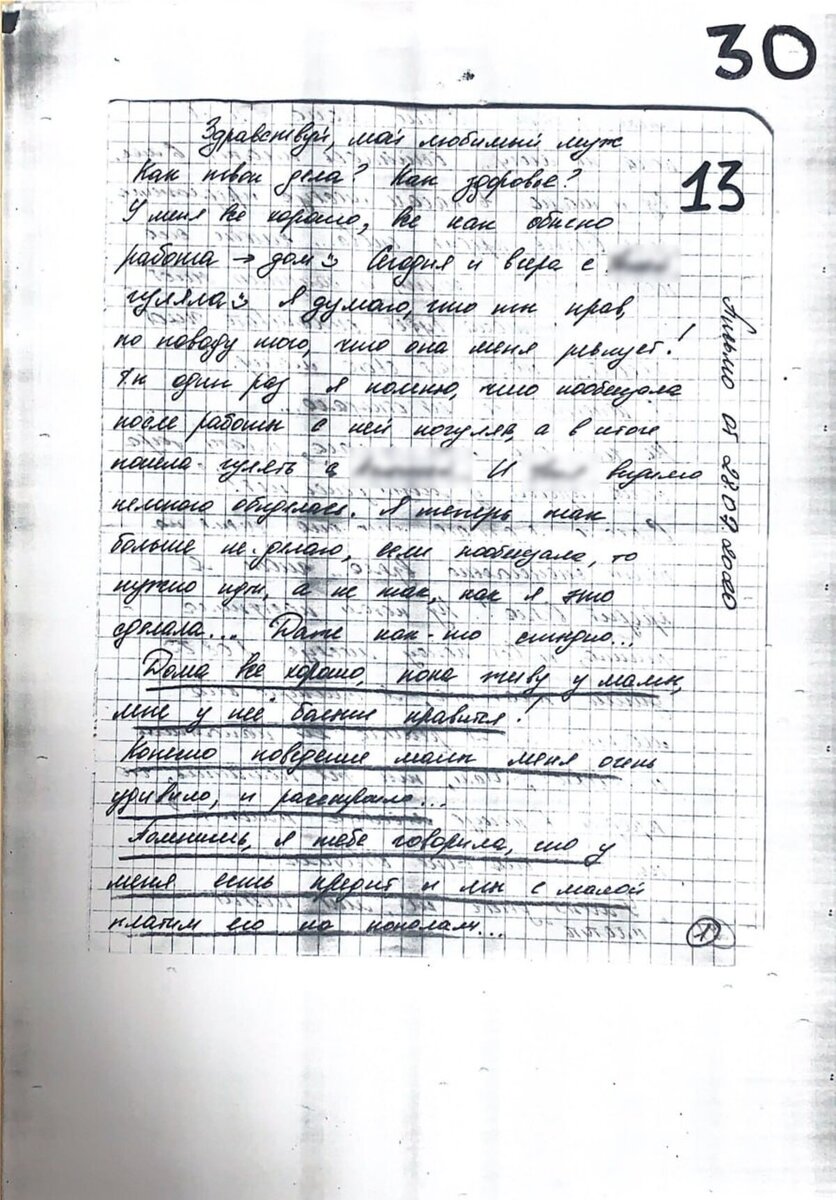 30
13
Здравствуй, мой любимый муж
Как твои дела? Как здоровье?
У меня все хорошо, все как обычно
работа → дом :) Сегодня и вчера с
гуляла :) Я думаю, что ты прав,
по поводу того, что она меня ревнует!
один раз я помню, что пообещала
после работы с ней погулять, а в итоге
пошла гулять с И видимо
немного обиделась. Я теперь так
больше не делаю, если пообещала, то
нужно идти, а не так, как я это
сделала... Даже как-то стыдно...
Дома все хорошо, пока живу у мамы,
мне у неё больше нравится!
Конешо поведение мамы меня очень
удивило, и расстроило...
Помнишь, я тебе говорила, что у
меня есть кредит и мы с мамой
платим его по пополам...
1
Письмо от 28.07.2020